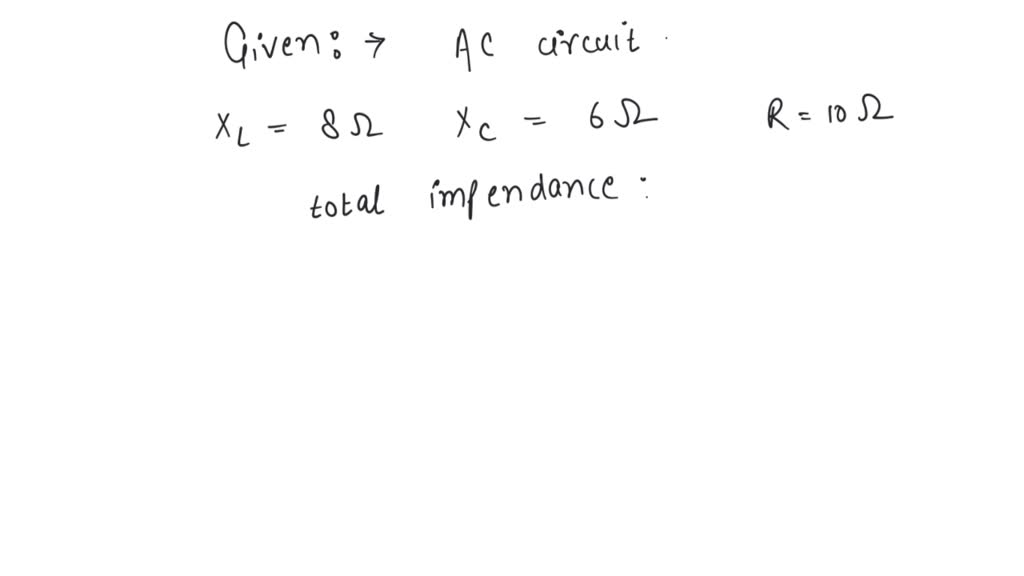 Given: → AC circuit.
X_L = 8 Ω X_C = 6 Ω R = 10 Ω
total impendance :